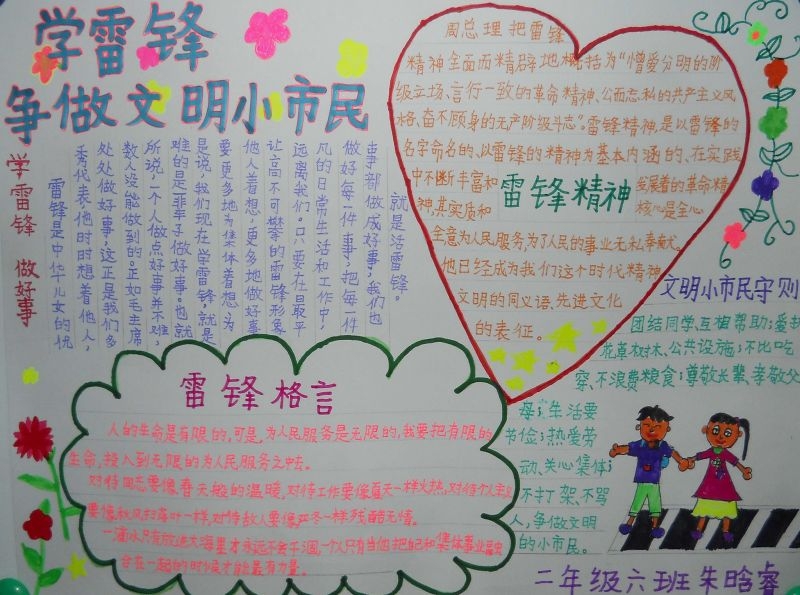 学雷锋
争做文明小市民
学雷锋 做好事
雷锋是中华儿女的优
秀代表他时时想着他人，
处处做好事，这正是我们多
数人没能做到的。正如毛主席
所说一个人做点好事并不难，
难的是一辈子做好事。也就
是说，我们现在学雷锋，就是
要更多地为集体着想，为
他人着想，更多地做好事
让高不可攀的雷锋形象
远离我们。只要在日最平
凡的日常生活和工作中，
做好每一件事，把每一件
事都做成好事，我们也
就是活雷锋。
周总理把雷锋
精神全面而精辟地概括为“憎爱分明的阶
级立场、言行一致的革命精神、公而忘私的共产主义风
格、奋不顾身的无产阶级斗志”。雷锋精神，是以雷锋的
名字命名的、以雷锋的精神为基本内涵的、在实践
中不断丰富和发展着的革命精
神，其实质和核心是全心
雷锋精神
全意为人民服务，为了人民的事业无私奉献。
他已经成为我们这个时代精神
文明的同义语、先进文化
的表征。
文明小市民守则
团结同学、互相帮助；爱护
花草树木、公共设施；不比吃
穿、不浪费粮食；尊敬长辈、孝敬父
母；生活要
节俭；热爱劳
动、关心集体；
不打架、不骂
人，争做文明
的小市民。
雷锋格言
人的生命是有限的，可是，为人民服务是无限的，我要把有限的
生命，投入到无限的为人民服务之中去。
对待同志要像春天般的温暖，对待工作要像夏天一样火热，对待个人主义
要像秋风扫落叶一样，对待敌人要像严冬一样残酷无情。
一滴水只有放进大海里才永远不会干涸，一个人只有当他把自己和集体事业融合
在一起的时候才能最有力量。
二年级六班朱晗睿